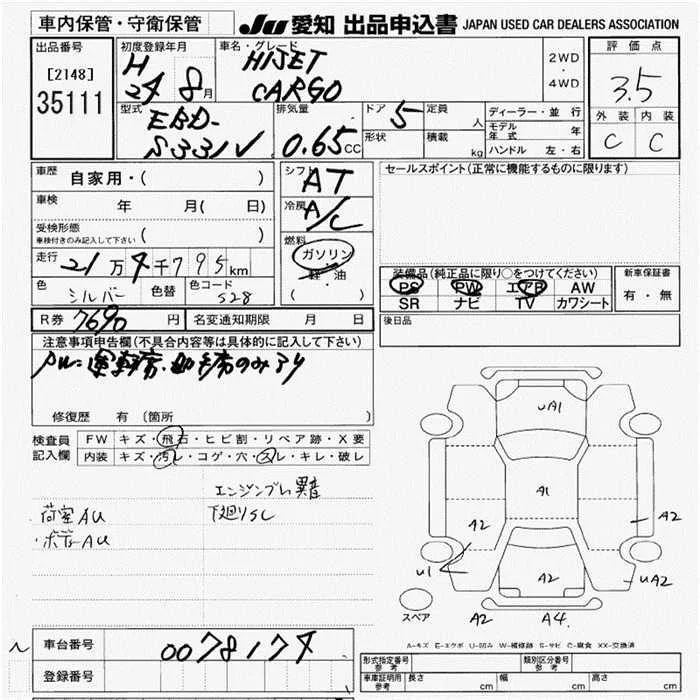 車内保管・守衛保管
JU 愛知 出品申込書 JAPAN USED CAR DEALERS ASSOCIATION
出品番号
[2148]
35111
初度登録年月
H
24 8月
車名・グレード
HIJET
CARGO
2WD
・
4WD
評価点
3.5
外装 内装
C C
型式
EBD-
S331V
排気量
0.65cc
ドア 5
形状
定員 人
積載 kg
ディーラー・並行
モデル年式 年
ハンドル 左・右
車歴 自家用・( )
車検 年 月( 日)
受検形態
車検付きのみ記入して下さい ( )
走行 21万4千795km
色 シルバー 色替 色コード S28
シフト AT
冷房 A/C
燃料
ガソリン
軽・油
( )
セールスポイント(正常に機能するものに限ります)
装備品(純正品に限り○をつけてください)
PS PW エアB AW
SR ナビ TV カワシート
新車保証書
有・無
R券 7690円 名変通知期限 月 日
後日品
注意事項申告欄(不具合内容等は具体的に記入して下さい)
PW:運転席・助手席のみあり
修復歴 有 〔箇所 〕
検査員
記入欄
FW キズ・飛石・ヒビ割・リペア跡・X要
内装 キズ・汚レ・コゲ・穴・スレ・キレ・破レ
エンジンブレ異音
荷室AU 下廻りSC
・ボディAU
UA1
A1
A2
A2
U1
A2
UA2
A2
A4.
スペア
A-キズ E-エクボ U-凹み W-補修跡 S-サビ C-腐食 XX-交換済
車台番号 0078174
登録番号
形式指定番号
参考
類別区分番号
参考
車庫証明用
参考
長さ cm 幅 cm 高さ cm